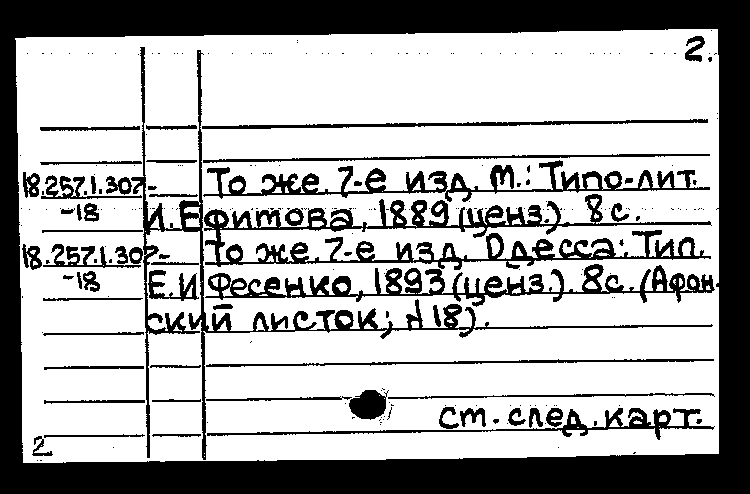 2.
18.257.1.307- То же. 7-е изд. М.: Типо-лит.
-18 И. Ефимова, 1889 (ценз.). 8 с.
18.257.1.307- То же. 7-е изд. Одесса: Тип.
-18 Е.И Фесенко, 1893 (ценз.). 8с. (Афон-
ский листок; № 18).
см. след. карт.
2